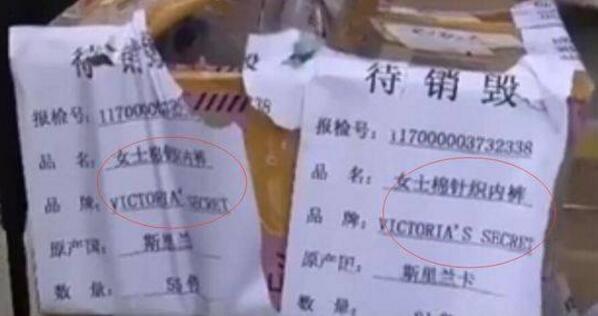 待销毁
报检号：117000003732338
品 名：女士棉针织内裤
品 牌：VICTORIA'S SECRET
原产国：斯里兰
数 量：
待销毁
报检号：117000003732338
品 名：女士棉针织内裤
品 牌：VICTORIA'S SECRET
原产国：斯里兰卡
数 量：